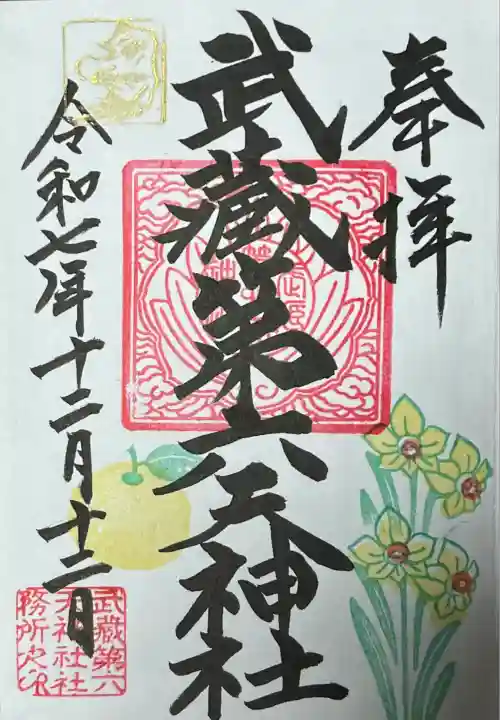 奉拝
武蔵第六天神社
令和七年十二月十二日
武蔵第六
天神社社
務所之印